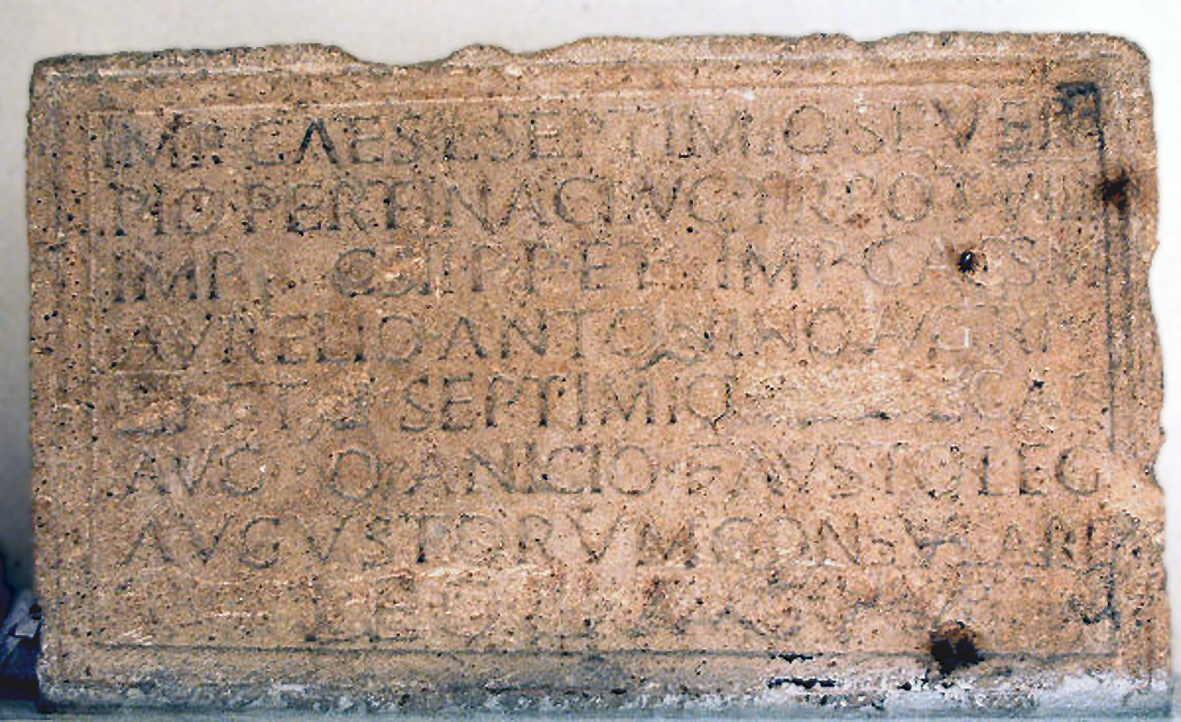 IMP CAES L SEPTIMIO SEVERO
PIO PERTINACI AVG TR POT VIIII
IMP COS II P P ET IMP CAES M
AVRELIO ANTONINO AVG TRI
ET SEPTIMIO CAES
AVG Q ANICIO FAVSTO LEG
AVGVSTORVM CONSVLARI
LEG III AVG